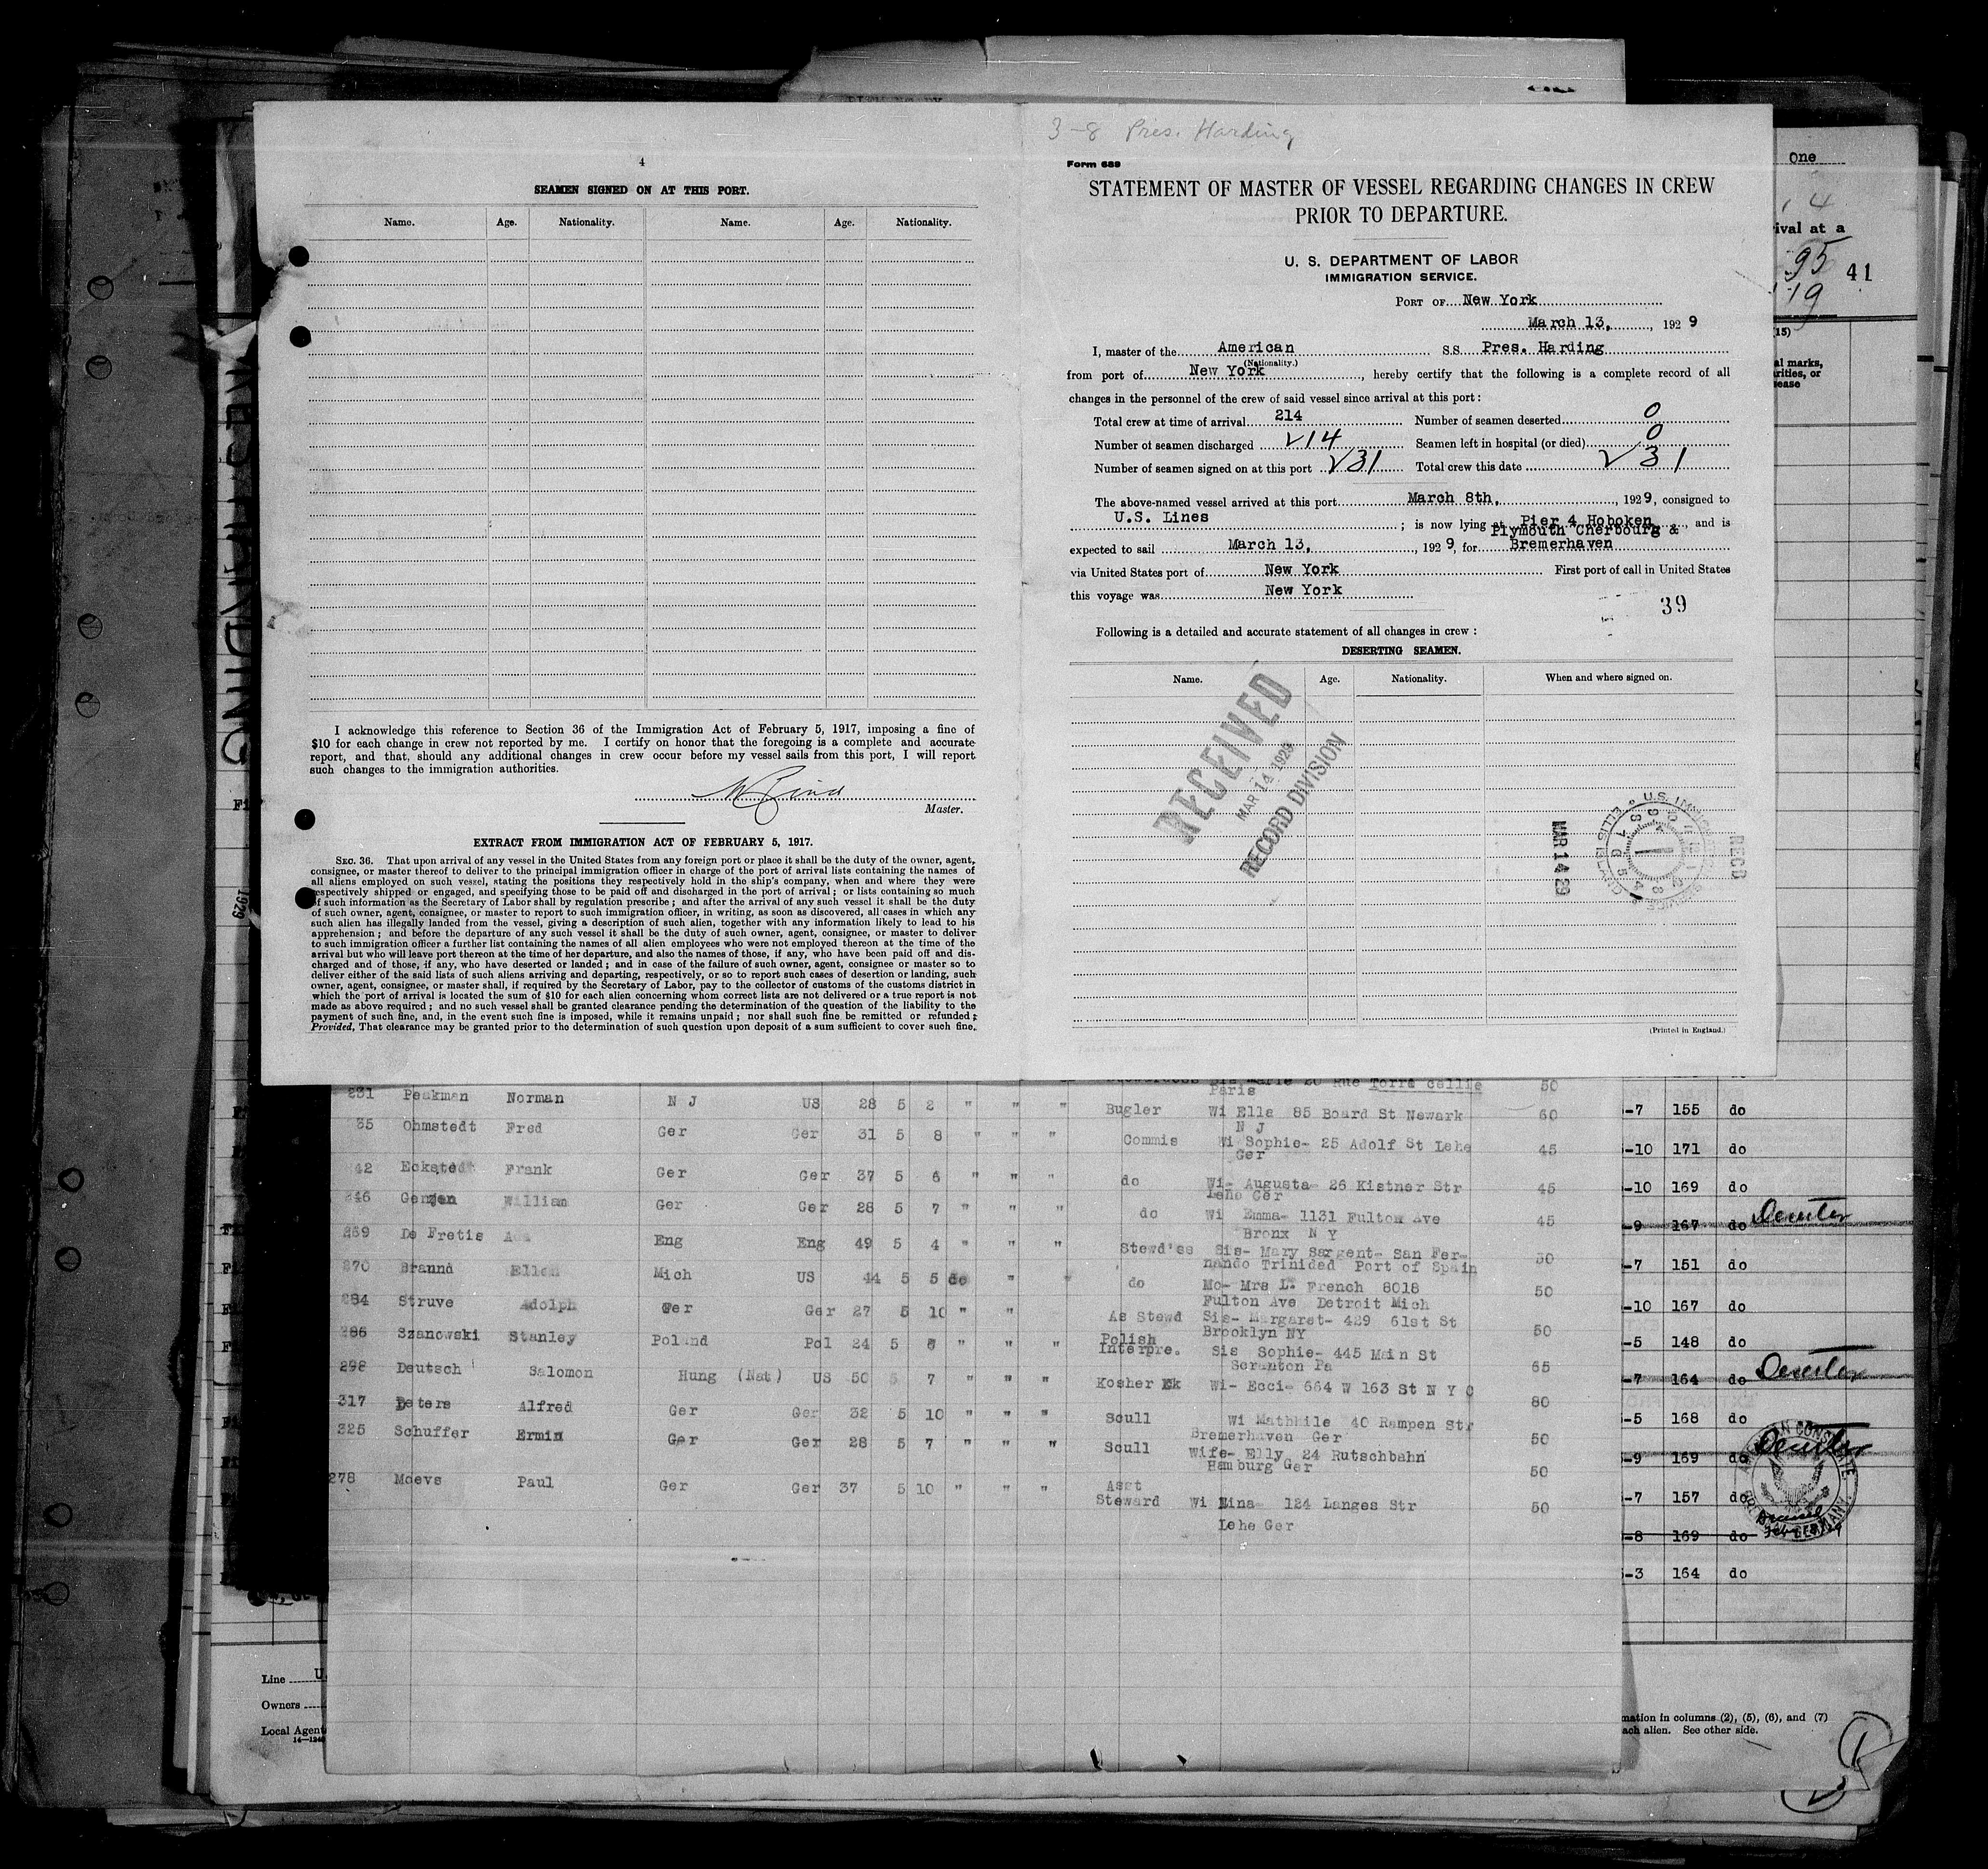 3-8 Pres. Harding
4
SEAMEN SIGNED ON AT THIS PORT.
Name. Age. Nationality. Name. Age. Nationality.
I acknowledge this reference to Section 36 of the Immigration Act of February 5, 1917, imposing a fine of
$10 for each change in crew not reported by me. I certify on honor that the foregoing is a complete and accurate
report, and that, should any additional changes in crew occur before my vessel sails from this port, I will report
such changes to the immigration authorities.
Master.
EXTRACT FROM IMMIGRATION ACT OF FEBRUARY 5, 1917.
SEC. 36. That upon arrival of any vessel in the United States from any foreign port or place it shall be the duty of the owner, agent,
consignee, or master thereof to deliver to the principal immigration officer in charge of the port of arrival lists containing the names of
all aliens employed on such vessel, stating the positions they respectively hold in the ship's company, when and where they were
respectively shipped or engaged, and specifying those to be paid off and discharged in the port of arrival; or lists containing so much
of such information as the Secretary of Labor shall by regulation prescribe; and after the arrival of any such vessel it shall be the duty
of such owner, agent, consignee, or master to report to such immigration officer, in writing, as soon as discovered, all cases in which any
such alien has illegally landed from the vessel, giving a description of such alien, together with any information likely to lead to his
apprehension; and before the departure of any such vessel it shall be the duty of such owner, agent, consignee, or master to deliver
to such immigration officer a further list containing the names of all alien employees who were not employed thereon at the time of the
arrival but who will leave port thereon at the time of her departure, and also the names of those, if any, who have been paid off and dis-
charged and of those, if any, who have deserted or landed; and in case of the failure of such owner, agent, consignee or master so to
deliver either of the said lists of such aliens arriving and departing, respectively, or so to report such cases of desertion or landing, such
owner, agent, consignee, or master shall, if required by the Secretary of Labor, pay to the collector of customs of the customs district in
which the port of arrival is located the sum of $10 for each alien concerning whom correct lists are not delivered or a true report is not
made as above required; and no such vessel shall be granted clearance pending the determination of the question of the liability to the
payment of such fine, and, in the event such fine is imposed, while it remains unpaid; nor shall such fine be remitted or refunded;
Provided, That clearance may be granted prior to the determination of such question upon deposit of a sum sufficient to cover such fine.
Form 689
STATEMENT OF MASTER OF VESSEL REGARDING CHANGES IN CREW
PRIOR TO DEPARTURE.
U. S. DEPARTMENT OF LABOR
IMMIGRATION SERVICE.
PORT OF New York
March 13, , 192 9
I, master of the American S.S. Pres. Harding
(Nationality.)
from port of New York, hereby certify that the following is a complete record of all
changes in the personnel of the crew of said vessel since arrival at this port:
Total crew at time of arrival 214 Number of seamen deserted 0
Number of seamen discharged √14 Seamen left in hospital (or died) 0
Number of seamen signed on at this port √31 Total crew this date √31
The above-named vessel arrived at this port March 8th, , 1929, consigned to
U.S. Lines ; is now lying at Pier 4 Hoboken, and is
Plymouth Cherbourg &
expected to sail March 13, , 192 9, for Bremerhaven
via United States port of New York First port of call in United States
this voyage was New York
39
Following is a detailed and accurate statement of all changes in crew:
DESERTING SEAMEN.
Name. Age. Nationality. When and where signed on.
RECEIVED
MAR 14 1929
RECORD DIVISION
MAR 14 29
RECD
(Printed in England.)
One
ival at a
95 41
19
(15)
al marks,
rities, or
sease
1929
Sis Marie 20 Rue Torre cellie 50
Paris
231 Peakman Norman N J US 28 5 2 " " " Bugler Wi Ella 85 Board St Newark 60
N J
35 Ohmstedt Fred Ger Ger 31 5 8 " " " Commis Wi Sophie- 25 Adolf St Lehe 45
Ger
42 Eckstedt Frank Ger Ger 37 5 6 " " " do Wi- Augusta- 26 Kistner Str 45
Lehe Ger
246 Genzen William Ger Ger 28 5 7 " " " do Wi Emma- 1131 Fulton Ave 45
Bronx N Y
269 De Fretis Ada Eng Eng 49 5 4 " " " Stewd'ss Sis- Mary Sargent- San Fer- 50
nando Trinidad Port of Spain
270 Brannd Ellen Mich US 44 5 5 do " " do Mo- Mrs L. French 8018 50
Fulton Ave Detroit Mich
284 Struve Adolph Ger Ger 27 5 10 " " As Stewd Sis- Margaret- 429 61st St 50
Brooklyn NY
286 Szanowski Stanley Poland Pol 24 5 6 " " " Polish
Interpre. Sis Sophie- 445 Main St 65
Scranton Pa
298 Deutsch Salomon Hung (Nat) US 50 5 7 " " " Kosher Ek Wi- Ecci- 664 W 163 St N Y C 80
317 Peters Alfred Ger Ger 32 5 10 " " " Scull Wi Mathhile 40 Rampen Str 50
Bremerhaven Ger
325 Schuffer Ermin Ger Ger 28 5 7 " " " Scull Wife- Elly 24 Rutschbahn 50
Hamburg Ger
278 Moevs Paul Ger Ger 37 5 10 " " " Asst
Steward Wi Mina- 124 Langes Str 50
Lehe Ger
-7 155 do
-10 171 do
-10 169 do
-9 167 do
-7 151 do
-10 167 do
-5 148 do
-7 164 do
-5 168 do
-9 169 do
-7 157 do
-8 169 do
-3 164 do
Line U
Owners
Local Agent
mation in columns (2), (5), (6), and (7)
ach alien. See other side.